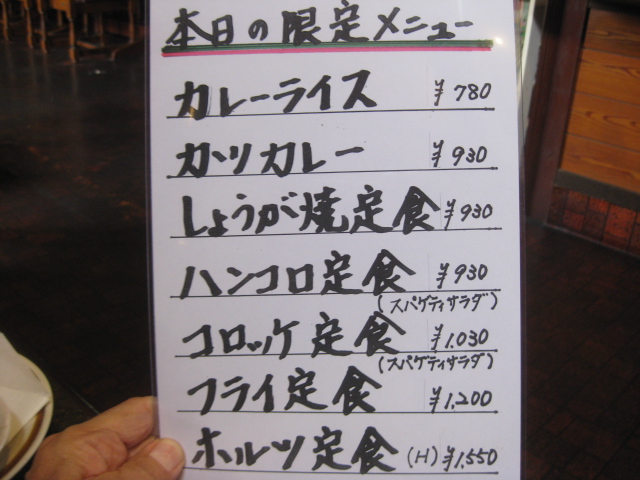 本日の限定メニュー
カレーライス ¥780
カツカレー ¥930
しょうが焼定食 ¥930
ハンコロ定食 ¥930
(スパゲティサラダ)
コロッケ定食 ¥1,030
(スパゲティサラダ)
フライ定食 ¥1,200
ホルツ定食 (H) ¥1,550